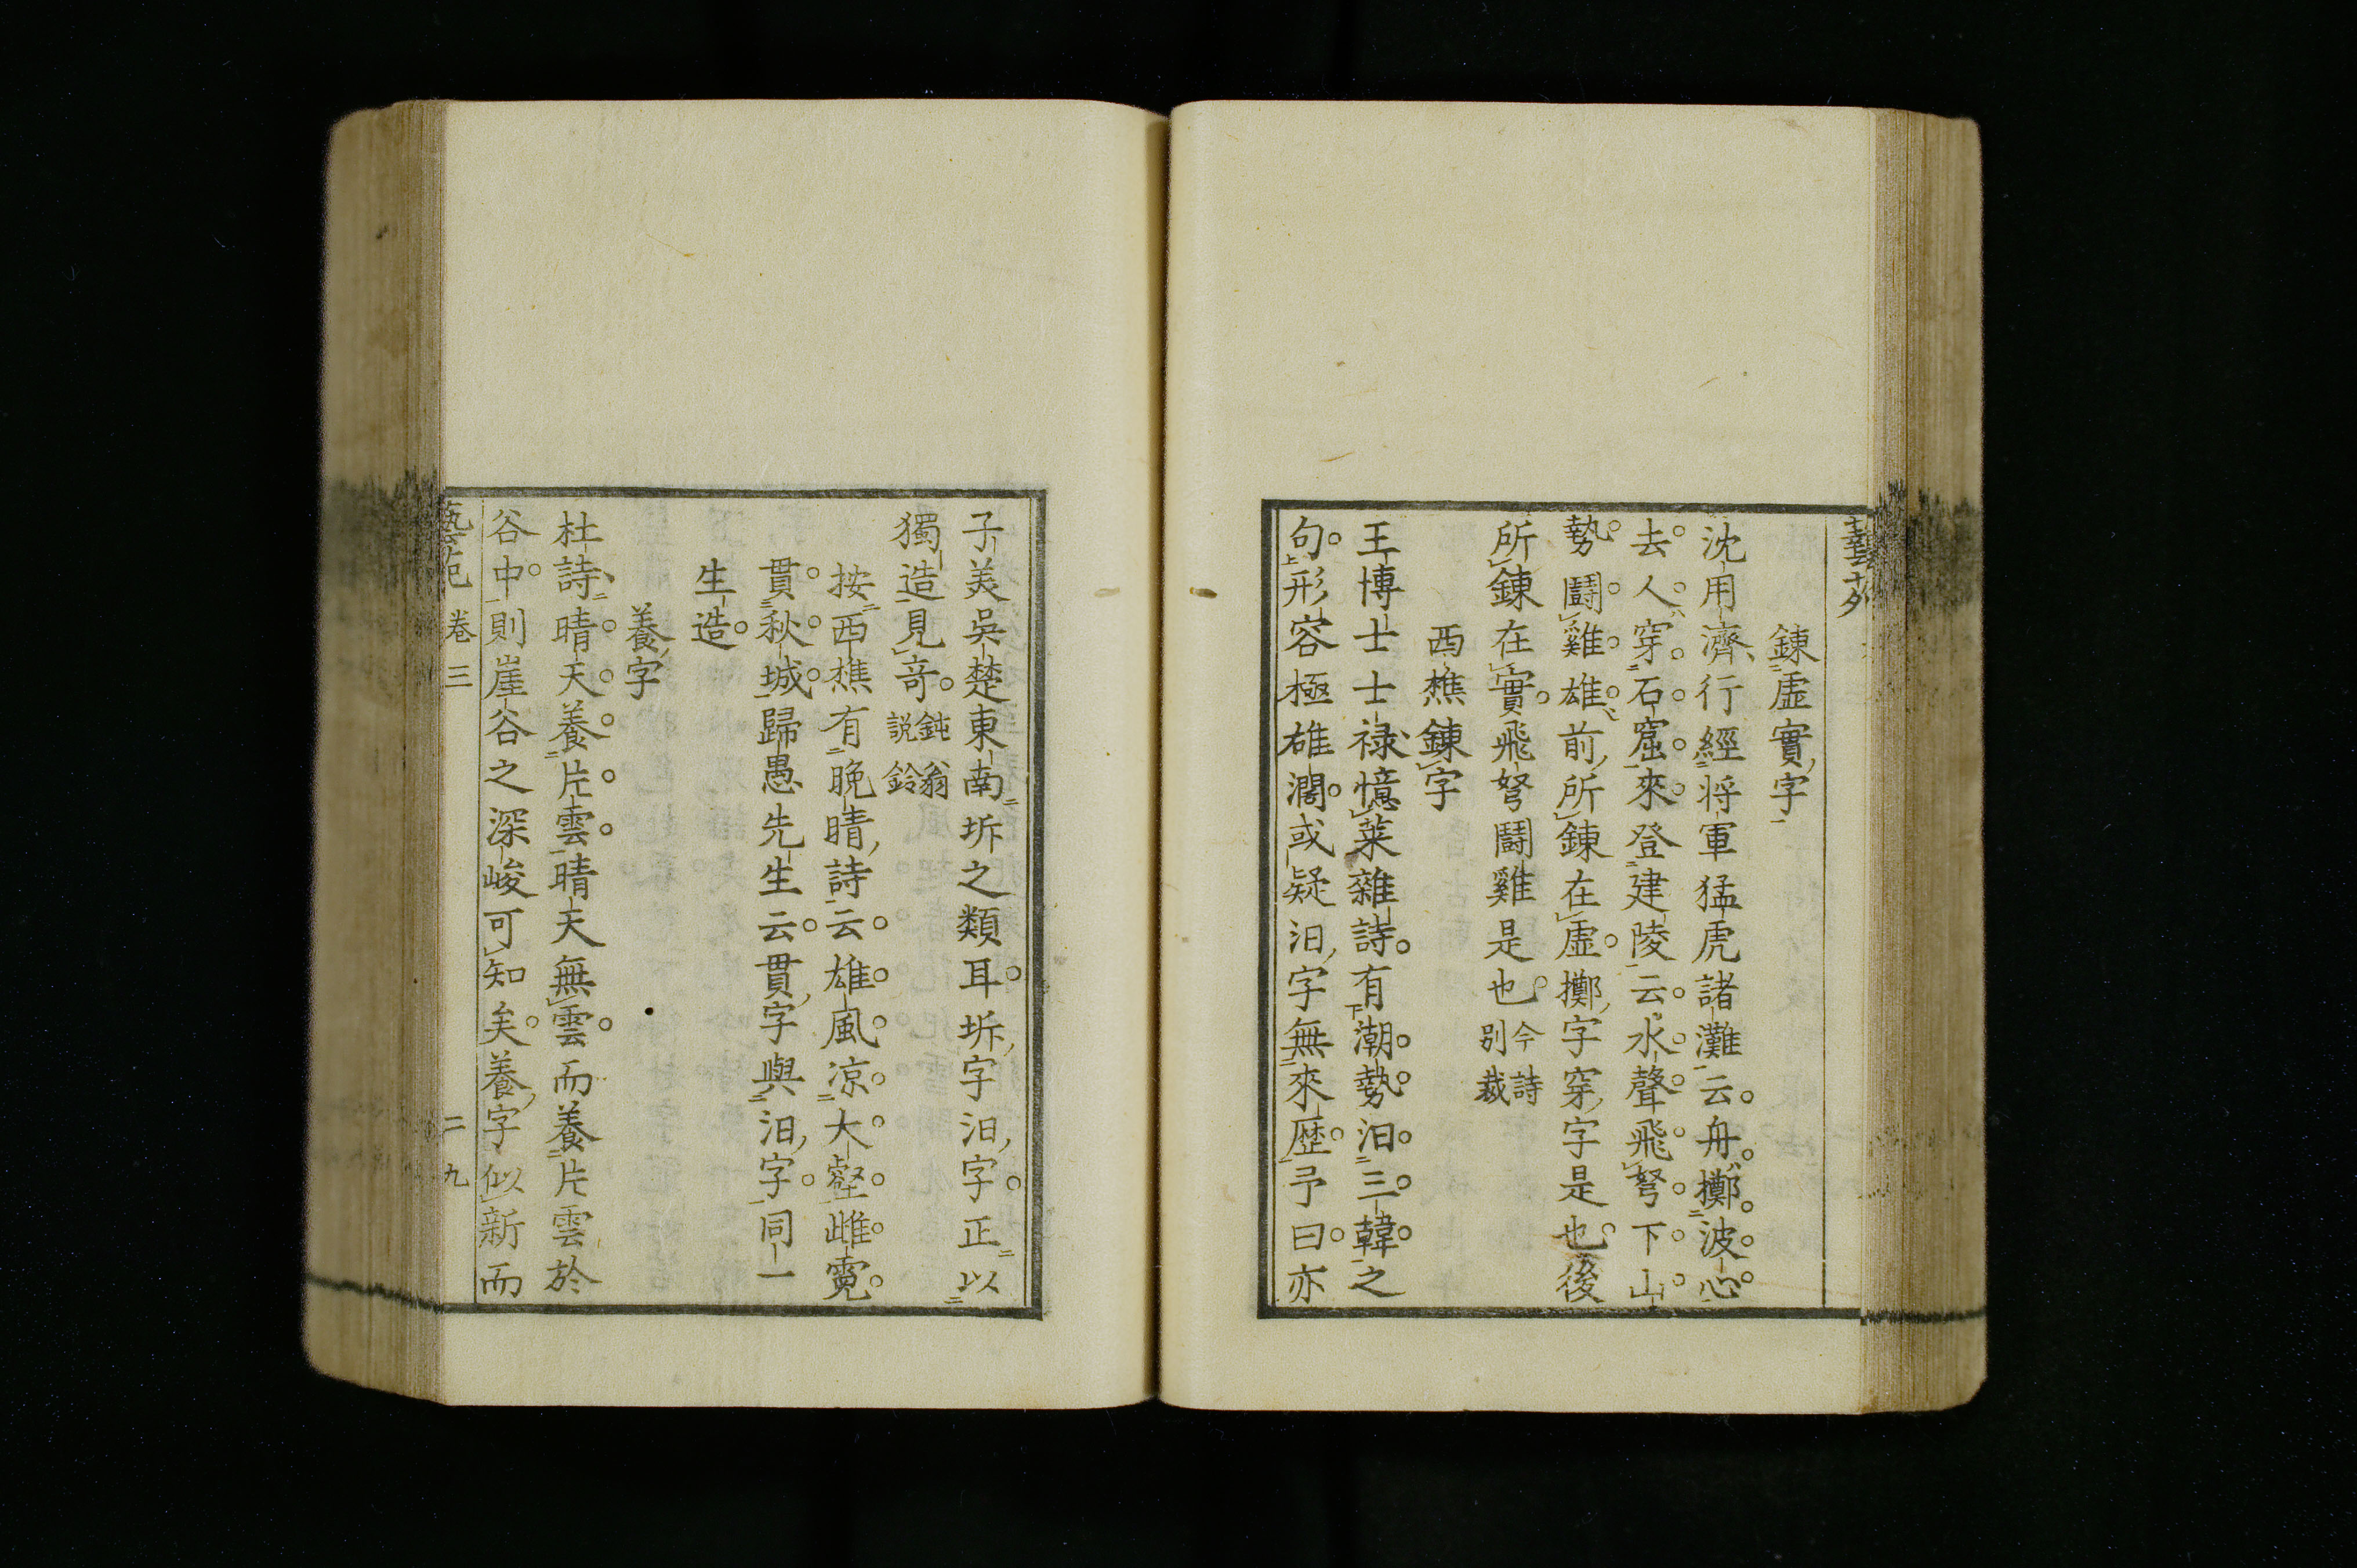 鍊虛實字
沈用濟行經將軍猛虎諸灘云舟擲波心
去人穿石窟來登建陵云水聲飛弩下山
勢鬪雞雄前所鍊在虛擲字穿字是也後
所鍊在實飛弩鬪雞是也今詩別裁
西樵鍊字
王博士士祿憶萊雜詩有潮勢汩三韓之
句形容極雄濶或疑汩字無來歷予曰亦
子美吳楚東南坼之類耳坼字汩字正以
獨造見奇鈍翁說鈴
按西樵有晚晴詩云雄風涼大壑雌霓
貫秋城歸愚先生云貫字與汩字同一
生造
養字
杜詩晴天養片雲晴天無雲而養片雲於
谷中則崖谷之深峻可知矣養字似新而
藝苑 卷三 二九